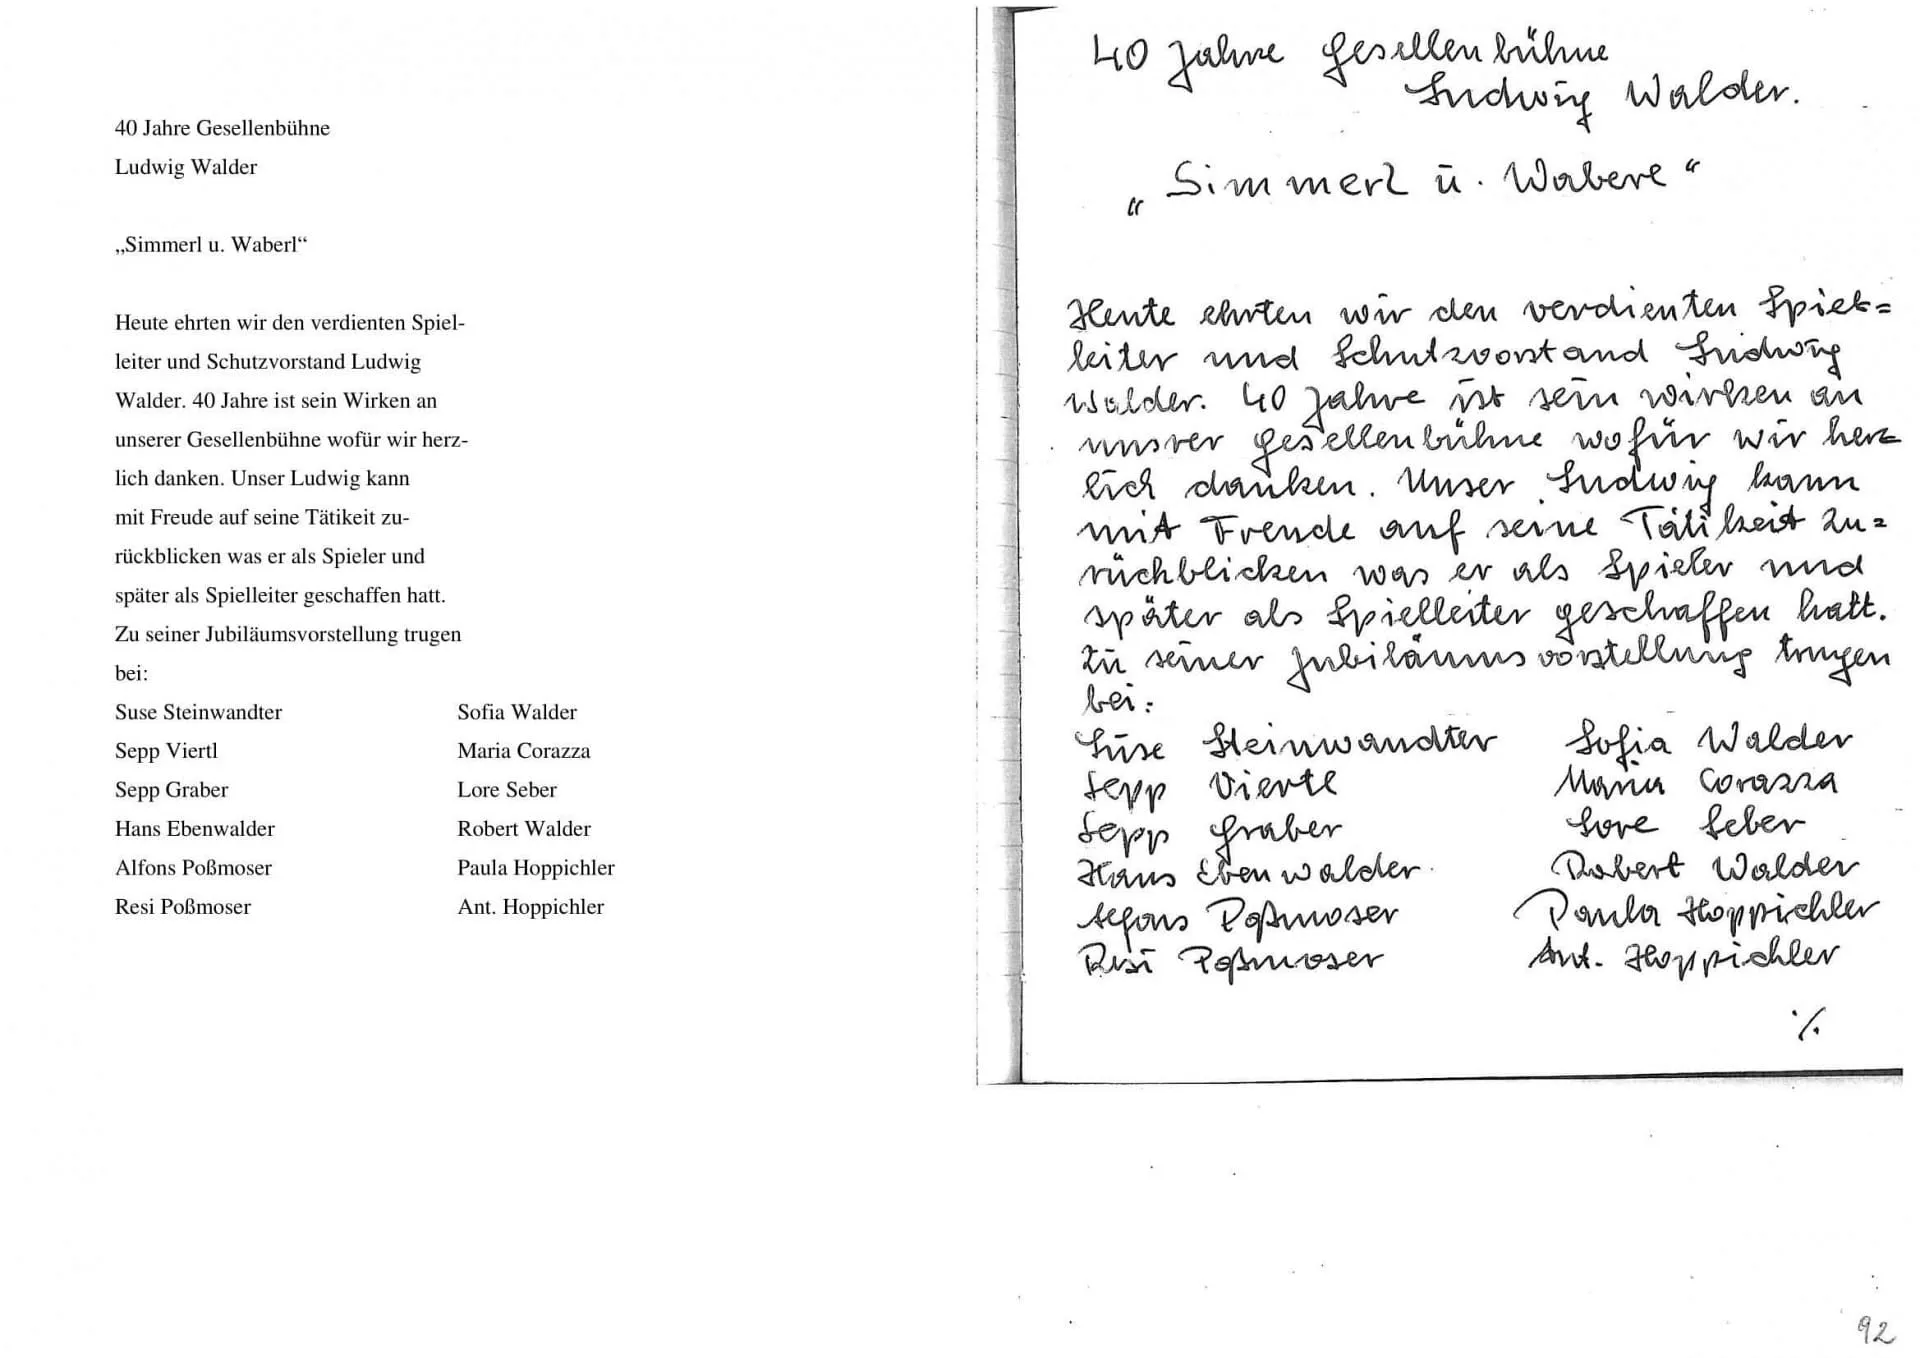 40 Jahre Gesellenbühne
Ludwig Walder
„Simmerl u. Waberl“
Heute ehrten wir den verdienten Spiel-
leiter und Schutzvorstand Ludwig
Walder. 40 Jahre ist sein Wirken an
unserer Gesellenbühne wofür wir herz-
lich danken. Unser Ludwig kann
mit Freude auf seine Tätikeit zu-
rückblicken was er als Spieler und
später als Spielleiter geschaffen hatt.
Zu seiner Jubiläumsvorstellung trugen
bei:
Suse Steinwandter Sofia Walder
Sepp Viertl Maria Corazza
Sepp Graber Lore Seber
Hans Ebenwalder Robert Walder
Alfons Poßmoser Paula Hoppichler
Resi Poßmoser Ant. Hoppichler
40 Jahre Gesellenbühne
Ludwig Walder.
„Simmerl ū. Waberl“
Heute ehrten wir den verdienten Spiel=
leiter und Schutzvorstand Ludwig
Walder. 40 Jahre ist sein wirken an
unsrer Gesellenbühne wofür wir herz
lich danken. Unser Ludwig kann
mit Freude auf seine Tätikeit zu=
rückblicken was er als Spieler und
später als Spielleiter geschaffen hatt.
Zu seiner Jubiläumsvorstellung trugen
bei:
Suse Steinwandter Sofia Walder
Sepp Viertl Maria Corazza
Sepp Graber Lore Seber
Hans Ebenwalder Robert Walder
Alfons Poßmoser Paula Hoppichler
Resi Poßmoser Ant. Hoppichler
./.
92